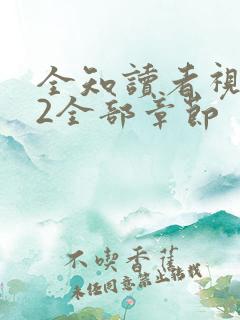 全知讀者視
2全部章節
不喫香蕉
未经同意禁止转载